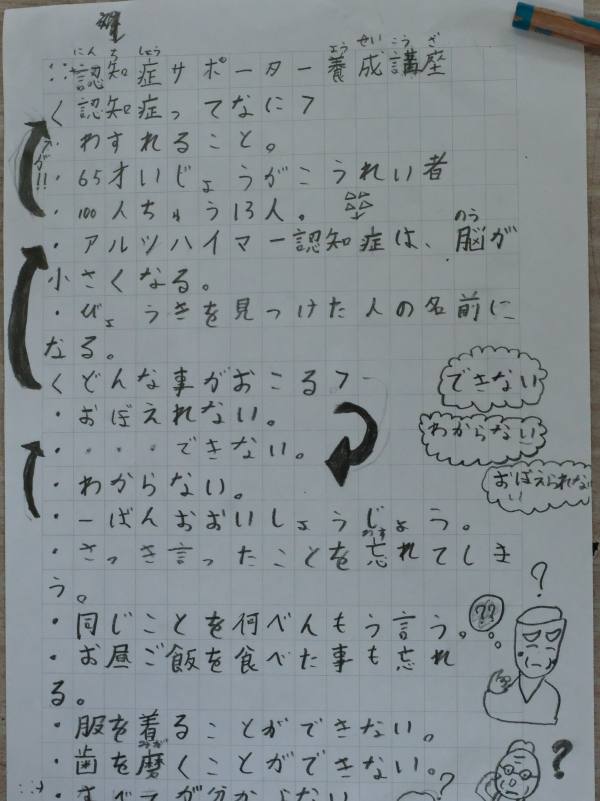 認知症サポーター養成講座
く認知症ってなに7
・わすれること。
・65才いじょうがこうれい者
・100人ちゅう13人。
・アルツハイマー認知症は、脳が
小さくなる。
・びょうきを見つけた人の名前に
なる。
くどんな事がおこる7
・おぼえれない。
・・・・できない。
・わからない。
・一ばんおおいしょうじょう。
・さっき言ったことを忘れてしま
う。
・同じことを何べんもう言う。
・お昼ご飯を食べた事も忘れ
る。
・服を着ることができない。
・歯を磨くことができない。
できない
わからない
おぼえられな
い
??
?
?
?